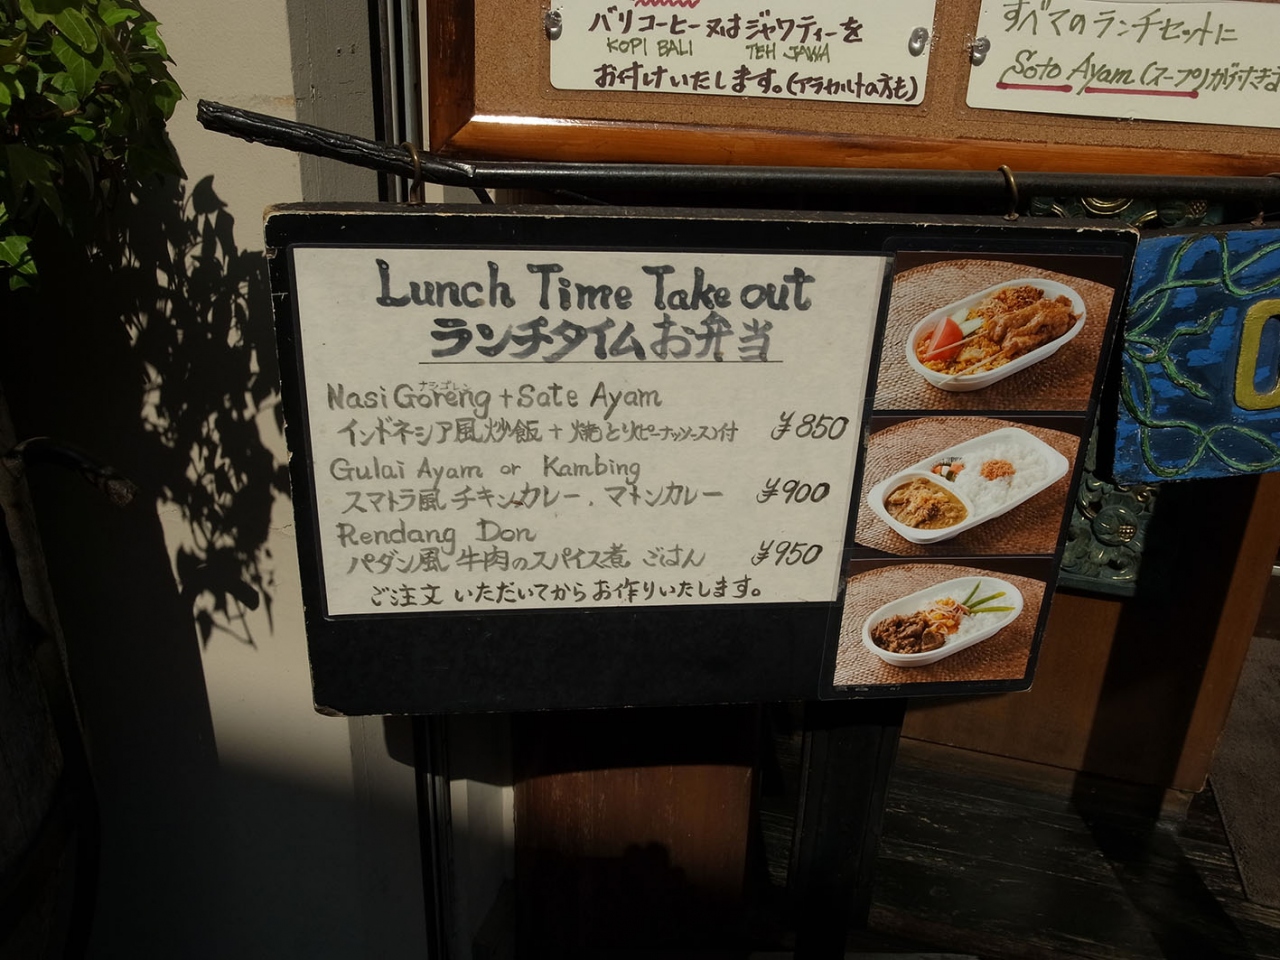 バリコーヒー又はジャワティーを
KOPI BALI TEH JAWA
お付けいたします。(アラカルトの方も)
すべてのランチセットに
Soto Ayam (スープ)が付きます
Lunch Time Take out
ランチタイムお弁当
ナシゴレン
Nasi Goreng + Sate Ayam
インドネシア風炒飯 + 焼とり(ピーナッツソース)付 ¥850
Gulai Ayam or Kambing
スマトラ風チキンカレー、マトンカレー ¥900
Rendang Don
パダン風 牛肉のスパイス煮 ごはん ¥950
ご注文いただいてからお作りいたします。